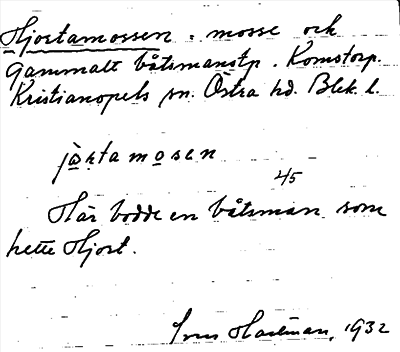 Hjortamossen : mosse och
gammalt båtsmanstp. Komstorp.
Kristianopels sn. Östra hd. Blek. l.
jɑ̀ṛtamosen
45
Här bodde en båtsman som
hette Hjort.
Hartman, 1932